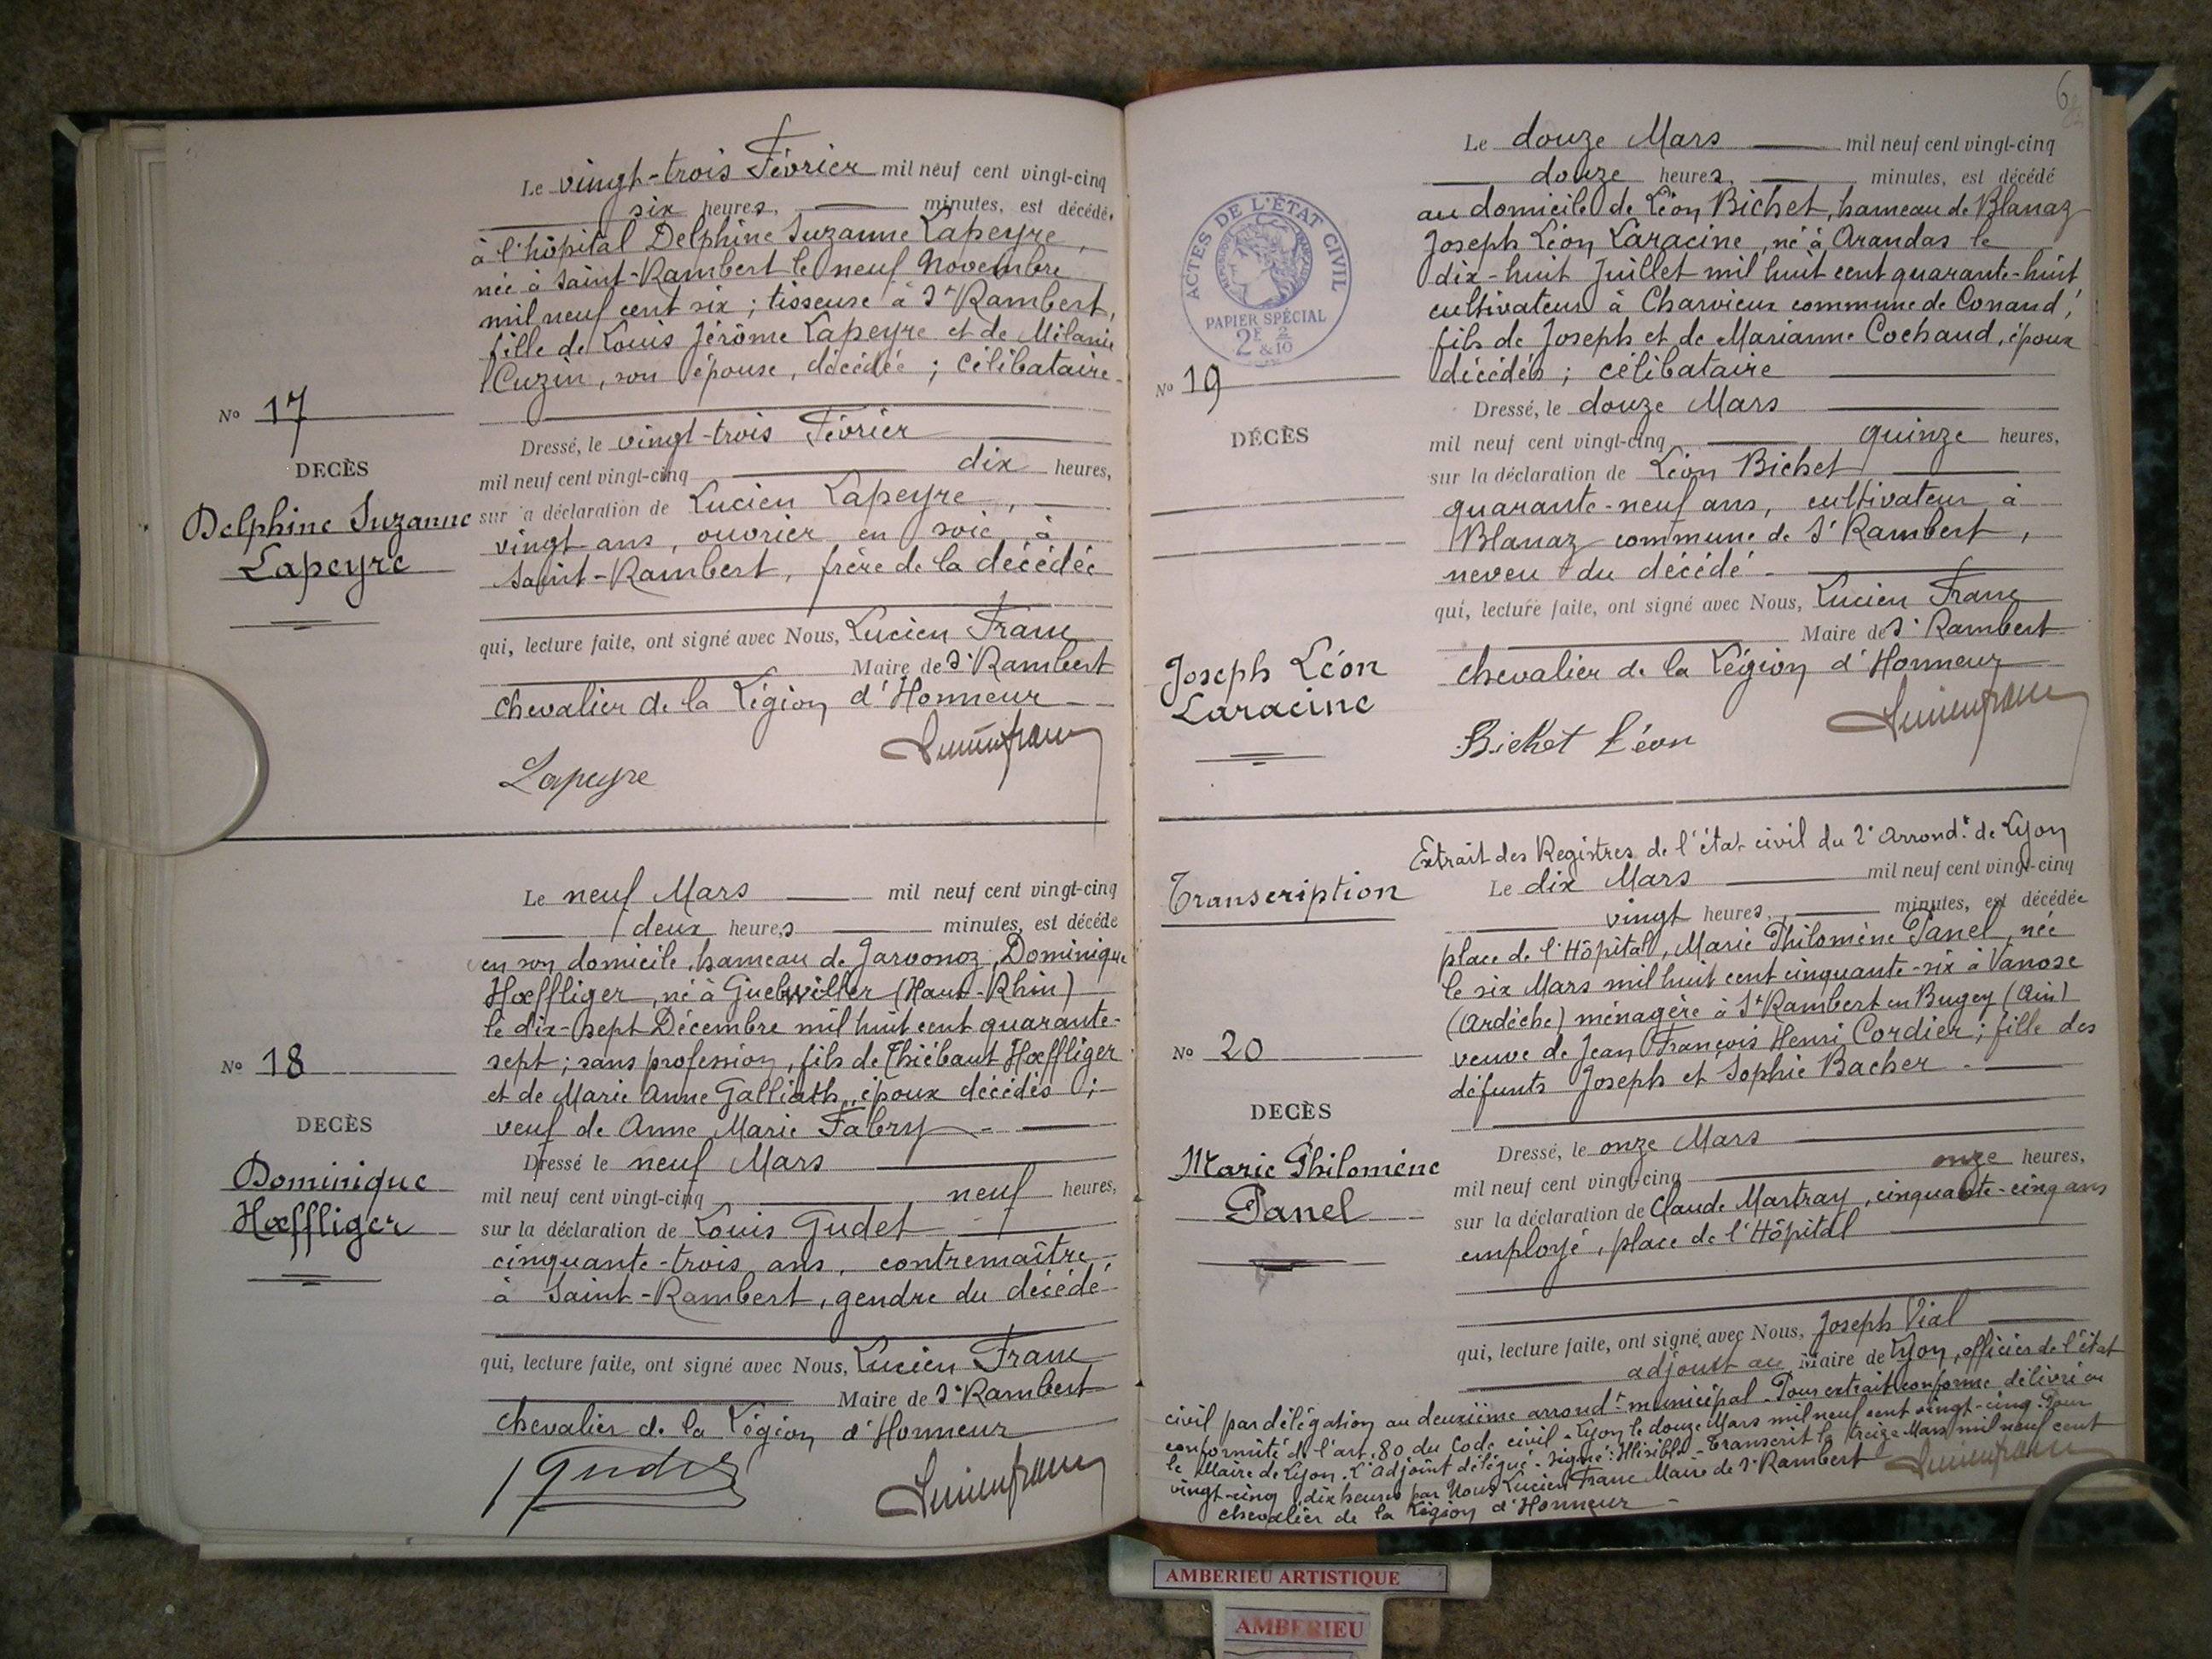 Le vingt-trois Février mil neuf cent vingt-cinq
six heures, minutes, est décédée
à l'hôpital Delphine Suzanne Lapeyre,
née à Saint-Rambert le neuf Novembre
mil neuf cent six ; tisseuse à St Rambert,
fille de Louis Jérôme Lapeyre et de Mélanie
Cuzin, son épouse, décédée ; célibataire
No 17
DECÈS
Delphine Suzanne
Lapeyre
Dressé, le vingt-trois Février
mil neuf cent vingt-cinq dix heures,
sur a déclaration de Lucien Lapeyre,
vingt ans, ouvrier en soie à
Saint-Rambert, frère de la décédée
qui, lecture faite, ont signé avec Nous, Lucien Franc
Maire de St Rambert
chevalier de la Légion d'Honneur
Lapeyre
Lucien franc
Le neuf Mars mil neuf cent vingt-cinq
deux heures minutes, est décédé
en son domicile, hameau de Javonoz, Dominique
Hœffliger, né à Guebwiller (Haut-Rhin)
le dix-sept Décembre mil huit cent quarante-
sept ; sans profession, fils de Thiébaut Hœffliger
et de Marie Anne Galliath, époux décédés ;
veuf de Anne Marie Fabry
No 18
DECÈS
Dominique
Hœffliger
Dressé le neuf Mars
mil neuf cent vingt-cinq, neuf heures,
sur la déclaration de Louis Gudet
cinquante-trois ans, contremaître
à Saint-Rambert, gendre du décédé
qui, lecture faite, ont signé avec Nous, Lucien Franc
Maire de St Rambert
chevalier de la Légion d'Honneur
Lucien franc
6
Le douze Mars mil neuf cent vingt-cinq
douze heures, minutes, est décédé
au domicile de Léon Bichet, hameau de Blanaz
Joseph Léon Laracine, né à Arandas le
dix-huit Juillet mil huit cent quarante-huit
cultivateur à Charvieux commune de Conand,
fils de Joseph et de Marianne Cochaud, époux
décédés ; célibataire
ACTES DE L'ÉTAT CIVIL
PAPIER SPÉCIAL
2F & 2/10
No 19
DÉCÈS
Joseph Léon
Laracine
Dressé, le douze Mars
mil neuf cent vingt-cinq quinze heures,
sur la déclaration de Léon Bichet
quarante-neuf ans, cultivateur à
Blanaz commune de St Rambert,
neveu du décédé
qui, lecture faite, ont signé avec Nous, Lucien Franc
Maire de St Rambert
chevalier de la Légion d'Honneur
Bichet Léon
Lucien franc
Transcription
Extrait des Registres de l'état civil du 2e Arrondt de Lyon
Le dix Mars mil neuf cent vingt-cinq
vingt heures, minutes, est décédée
place de l'Hôpital, Marie Philomène Panel, née
le six Mars mil huit cent cinquante-six à Vanosc
(Ardèche) ménagère à St Rambert en Bugey (Ain)
veuve de Jean François Henri Cordier ; fille des
défunts Joseph et Sophie Bacher
No 20
DECÈS
Marie Philomène
Panel
Dressé, le onze Mars
mil neuf cent vingt-cinq onze heures,
sur la déclaration de Claude Martray, cinquante-cinq ans
employé, place de l'Hôpital
qui, lecture faite, ont signé avec Nous, Joseph Vial
adjoint au Maire de Lyon, officier de l'état
civil par délégation au deuxième arrondt municipal - Pour extrait conforme délivré en
conformité de l'art. 80 du Code civil - Lyon le douze Mars mil neuf cent vingt-cinq. Pour
le Maire de Lyon. L'Adjoint délégué - signé : Illisible - Transcrit le treize Mars mil neuf cent
vingt-cinq, dix heures par Nous Lucien Franc Maire de St Rambert
chevalier de la Légion d'Honneur
Lucien franc
AMBERIEU ARTISTIQUE
AMBERIEU